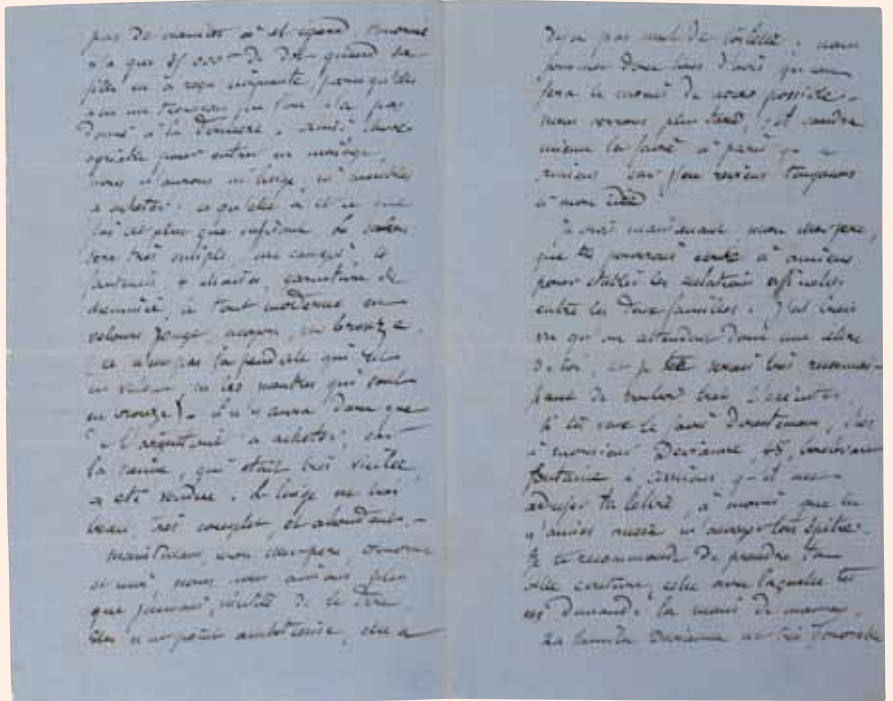 pas de à et égard. Honorine
n'a que 000 f de dot quand sa
en a reçu cinquante parce qu'elle
a eu un trousseau que l'on n'a pas
donné à la dernière. Ainsi chose
agréable pour entrer en ménage,
nous n'aurons ni linge, ni meubles
à acheter. ce qu'elle a et ce que
j'ai est plus que suffisant. Le salon
sera très simple, un canapé, 4
fauteuils, 4 chaises, garniture de
cheminée, le tout moderne en
velours rouge, acajou, ou bronze.
(ce n'est pas la pendule qui sera
en velours, ni les qui sont
en bronze). - il n'y aura donc que
l'argenterie à acheter, car
la sienne, qui était très vieille,
a été vendue. Le linge est très
beau, très complet, et abondant. -
Maintenant, mon cher père, Honorine
et moi nous nous aimons plus
que jamais, de le dire
elle a
déjà pas mal de toilette. nous
sommes donc tous d'avis qu'on
fera le moins de noces possible.
nous verrons plus tard, s'il vaudra
mieux la faire à Paris qu'à
Amiens car j'en reviens toujours
à mon idée
Je crois maintenant mon cher père,
que tu pourrais écrire à Amiens
pour établir les relations officielles
entre les deux familles. J'ai
vu qu'on attendait donc une lettre
de toi, et je te serais très reconnaissant
de vouloir bien l'écrire.
Si tu veux le faire directement, c'est
à monsieur Deviane,
fontaine, Amiens, qu'il
adresser ta lettre, à moins que tu
n'aimes mieux m'envoyer
Je te recommande de prendre ta
belle écriture, celle avec laquelle tu
as demandé la main de maman.
La famille Deviane est très honorable